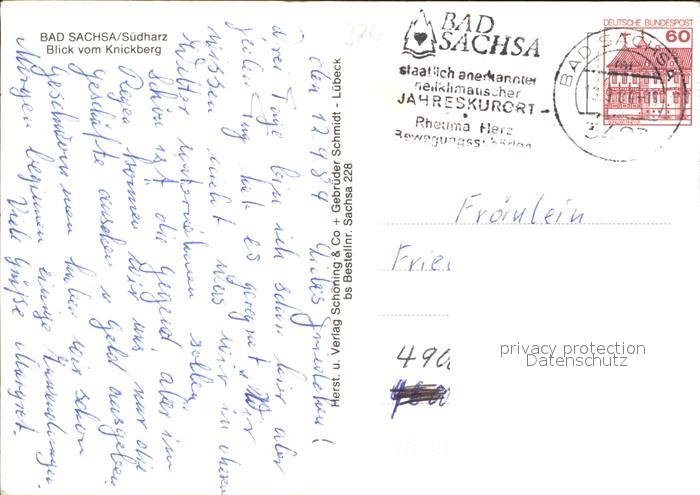 BAD SACHSA/Südharz
Blick vom Knickberg
374
BAD
SACHSA
staatlich anerkannter
heilklimatischer
JAHRESKURORT
Rheuma Herz
Bewegungsschäden
DEUTSCHE BUNDESPOST
60
BAD SACHSA
den 12 9 84
drei Tage bin ich schon hier aber
jeden Tag hat es geregnet. Wir
wissen nicht was wir in diesem
Wetter unternehmen sollen.
Schön ist die Gegend, aber im
Regen können wir uns nur die
Geschäfte ansehen u Geld ausgeben
haben wir schon
Morgen beginnen einige
Viele Grüße Margret.
Herst. u. Verlag Schöning & Co + Gebrüder Schmidt - Lübeck
bs Bestellnr. Sachsa 228
Fräulein
Frie
490
privacy protection
Datenschutz